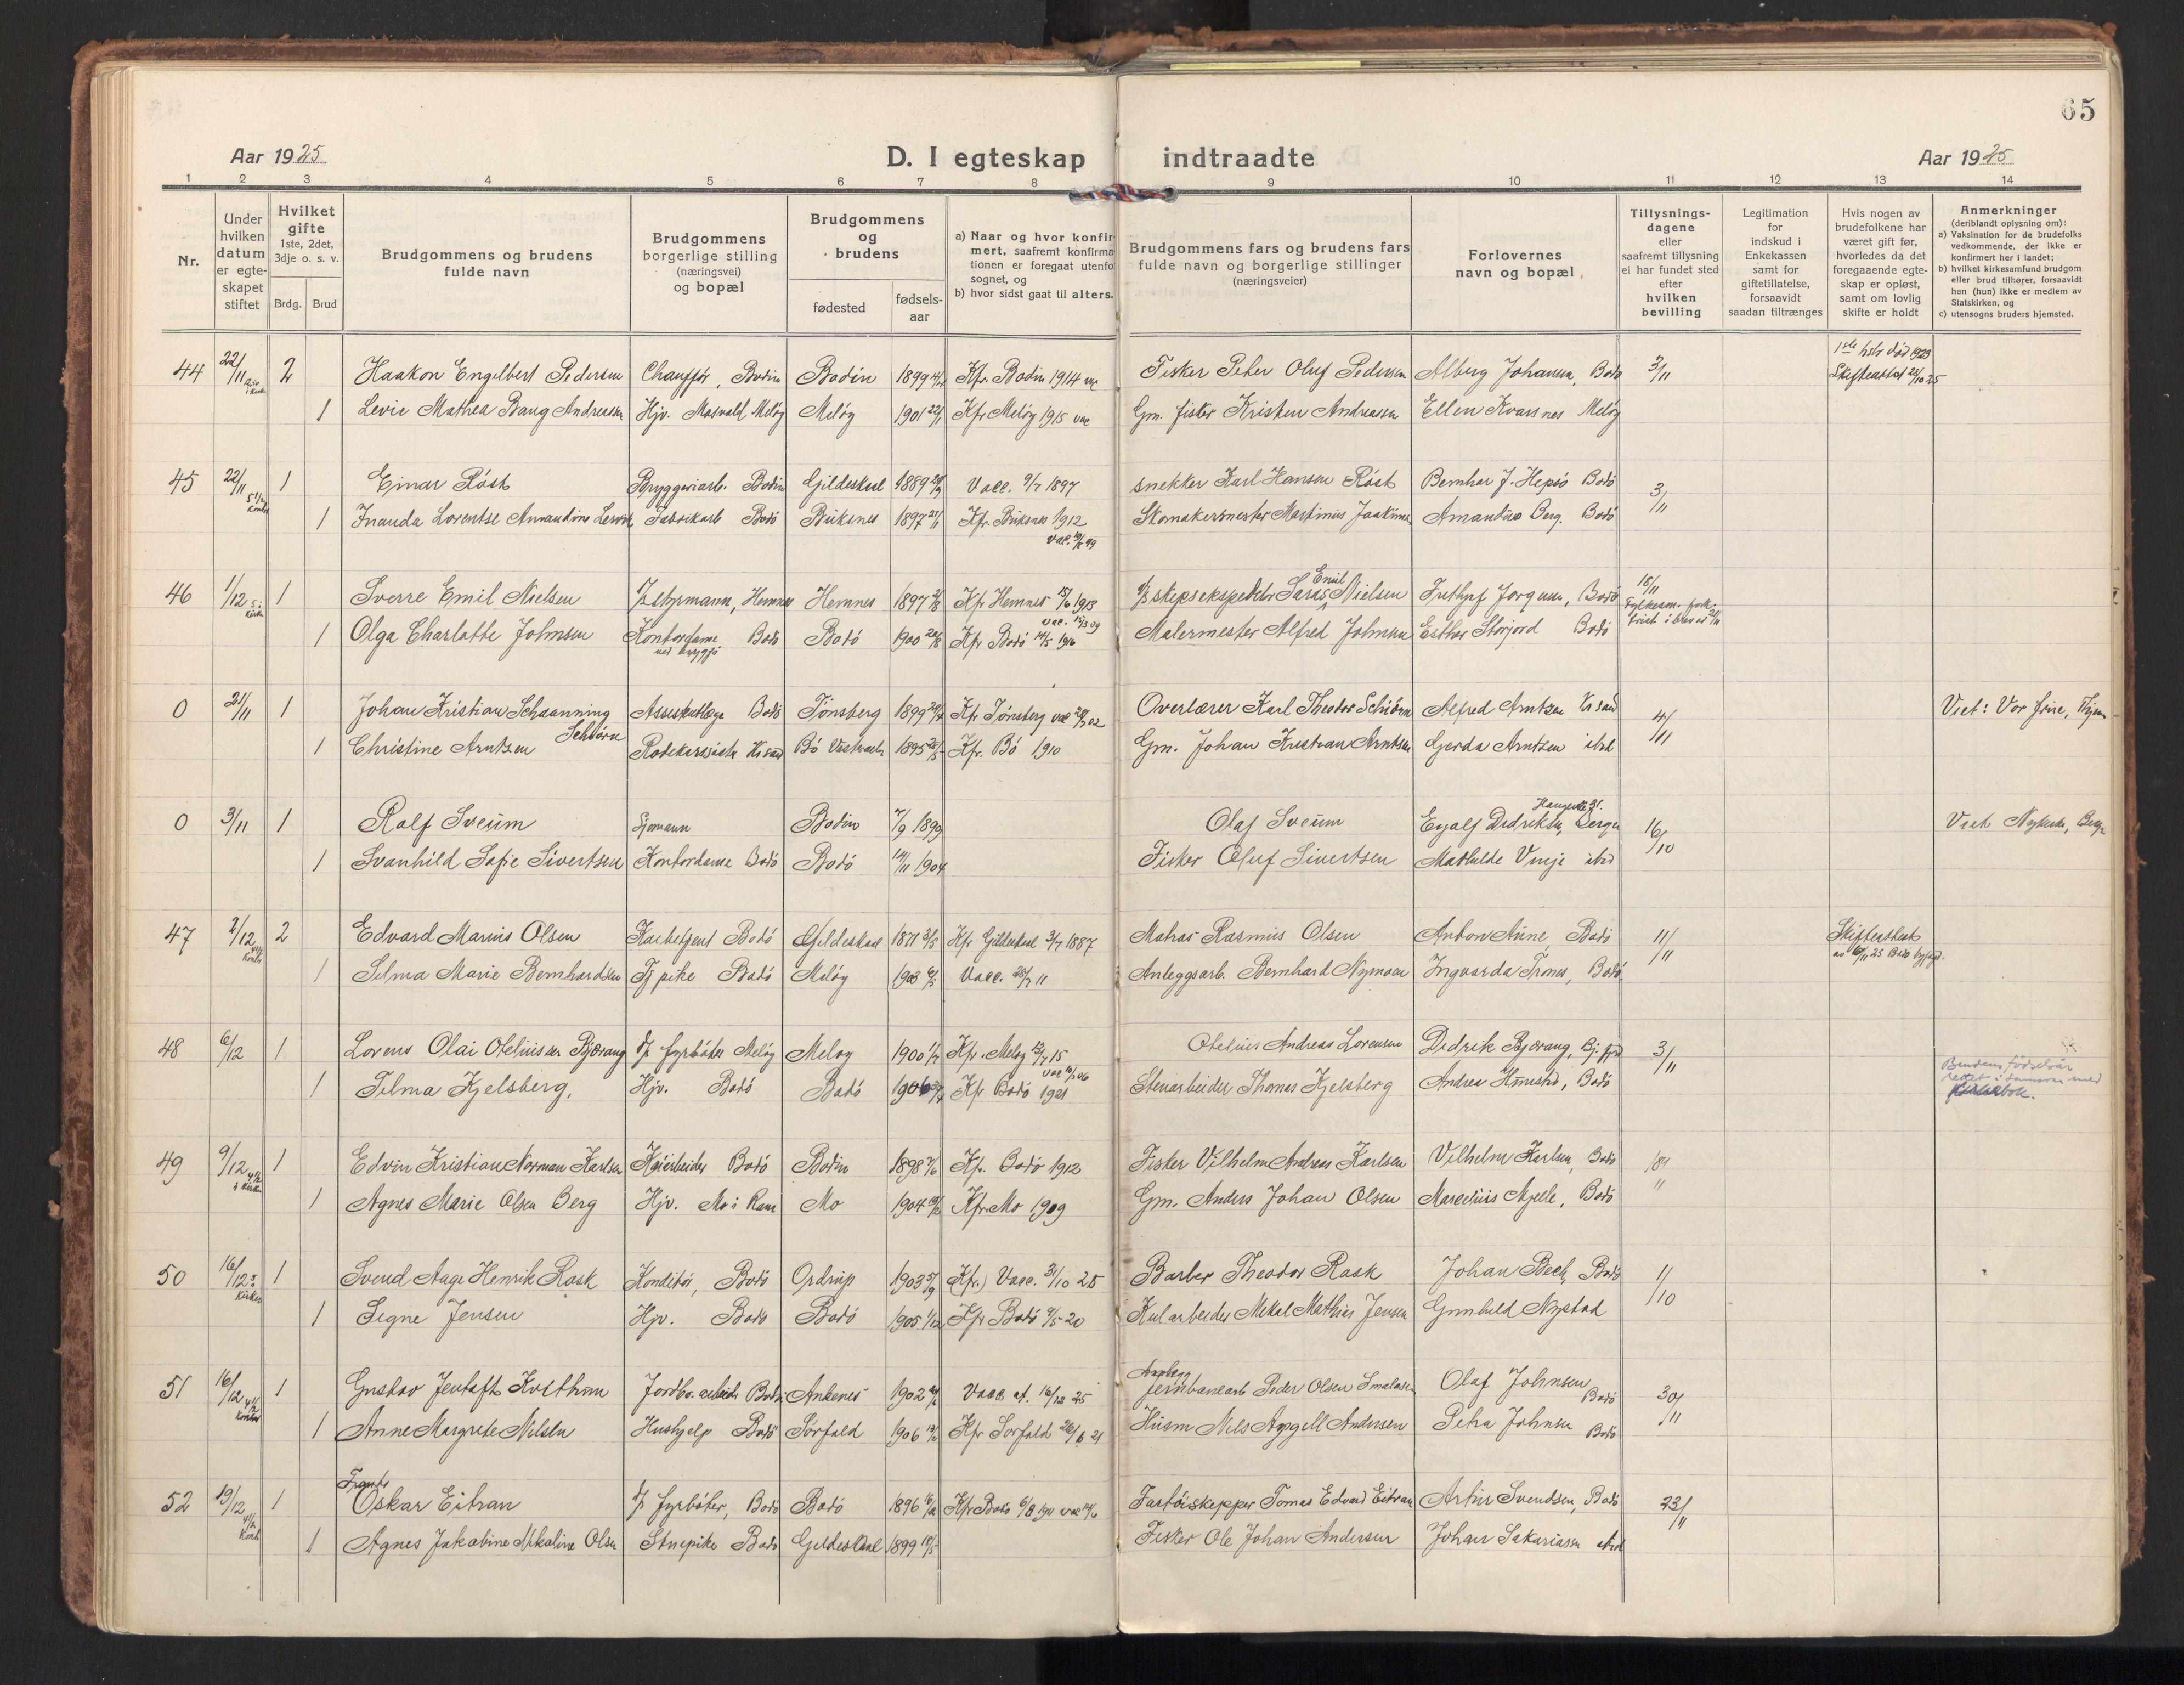 65
Aar 1925 D. I egteskap indtraadte Aar 1925
1 2 3 4 5 6 7 8 9 10 11 12 13 14
Nr.
Under hvilken datum er egteskapet stiftet
Hvilket gifte 1ste, 2det, 3dje o. s. v.
Brdg. Brud
Brudgommens og brudens fulde navn
Brudgommens borgerlige stilling (næringsvei) og bopæl
Brudgommens og brudens
fødested
fødsels-aar
a) Naar og hvor konfirmert, saafremt konfirmationen er foregaat utenfor sognet, og
b) hvor sidst gaat til alters.
Brudgommens fars og brudens fars fulde navn og borgerlige stillinger (næringsveier)
Forlovernes navn og bopæl
Tillysningsdagene eller saafremt tillysning ei har fundet sted efter hvilken bevilling
Legitimation for indskud i Enkekassen samt for giftetillatelse, forsaavidt saadan tiltrænges
Hvis nogen av brudefolkene har været gift før, hvorledes da det foregaaende egteskap er opløst, samt om lovlig skifte er holdt
Anmerkninger (deriblandt oplysning om):
a) Vaksination for de brudefolks vedkommende, der ikke er konfirmert her i landet;
b) hvilket kirkesamfund brudgom eller brud tilhører, forsaavidt han (hun) ikke er medlem av Statskirken, og
c) utensogns bruders hjemsted.
44 22/11 2 Haakon Engelbert Pedersen Chauffør, Bodin Bodin 1899 Kfr. Bodin 1914 Fisker Peter Oluf Pedersen Alberg Johansen, Bodø 3/11 1ste hstr død 1923 Skifteattest 22/10 25
1 Levie Mathea Bang Andreassen Hjv. Mosvold Meløy Meløy 1901 22/1 Kfr Meløy 1915 vac Gm. fisker Kristen Andreasen Ellen Kvarsnes Meløy
45 22/11 1 Einar Røst Bryggeriarb. Bodin Gildeskaal 1889 Vacc. 9/7 1897 snekker Karl Hansen Røst Bernhar J. Hepsø Bodø 3/11
1 Inanda Lorentse Amandine Fabrikarb Bodø Buksnes 1897 Kfr. Buksnes 1912 Skomakermester Martinius Jaakimsen Amandus Berg. Bodø
46 1/12 1 Sverre Emil Nielsen Hemnes Hemnes 1897 Kfr Hemnes 1913 D/skipsekspeditør Emil Nielsen Bodø 18/11
1 Olga Charlotte Johnsen Kontordame Bodø Bodø 1900 Kfr Bodø 14/5 1916 Malermester Alfred Johnsen Esther Storjord Bodø
0 21/11 1 Johan Kristian Schaanning Schiørn Assistentlæge Bodø Tønsberg 1899 Kfr Tønsberg vac Overlærer Karl Theodor Schiørn Alfred Arntzen Kr sand 4/11 Viet: Vor frue,
1 Christine Arntsen Bø 1895 Kfr. Bø 1910 Gm. Johan Kristian Arntsen Gerda Arntzen ibid
0 3/11 1 Rolf Sveum Sjømann Bodin 7/9 1899 Olaf Sveum Eyolf Didriksen, Bergen 16/10 Viet Nykirke, Bergen
1 Svanhild Sofie Sivertsen Kontordame Bodø Bodø 14/11 1904 Fisker Oluf Sivertsen Mathilde Vinje ibid
47 2/12 2 Edvard Marius Olsen Bodø Gildeskaal 1871 3/5 Kfr Gildeskaal 3/7 1887 Matros Rasmus Olsen Anton Aune, Bodø 11/11 Skifteattest
1 Selma Marie Bernhardsen Tj pike Bodø Meløy 1903 Vacc. 20/7 11 Anleggsarb. Bernhard Nymoen Ingvarda Trones, Bodø
48 6/12 1 Lorens Olai Oteliussen Bjærang D/s fyrbøter Meløy Meløy 1900 Kfr. Meløy 15 Otelius Andreas Lorensen Didrik Bjærang, 3/11
1 Tilma Kjelsberg. Hjv. Bodø Bodø 1906 Kfr Bodø 1921 Stenarbeider Thomas Kjelsberg Andrea Bodø
Brudens fødselsår rettet i samsvar med kirkebok.
49 9/12 1 Edvin Kristian Norman Karlsen Bodø Bodin 1898 Kfr. Bodø 1912 Fisker Vilhelm Andreas Karlsen Vilhelm Karlsen, Bodø 18/11
1 Agnes Marie Olsen Berg Hjv. Mo i Rana Mo 1904 Kfr Mo 1909 Gm. Anders Johan Olsen Marcelius Mjelle, Bodø
50 16/12 1 Svend Aage Henrik Rask Konditor, Bodø Ordrup 1903 (Kfr.) Vacc. 31/10 25 Barber Theodor Rask Johan Bech, Bodø 11/10
1 Signe Jensen Hjv. Bodø Bodø 1905 1/12 Kfr Bodø 9/5 20 Kularbeider Mekal Mathias Jensen Gunhild Nystad
51 16/12 1 Gustav Jentoft Kvethem Bodø Ankenes 1902 Vacc at. 16/12 25 jernbanearb Peder Olsen Olaf Johnsen Bodø 30/11
1 Anne Margrete Nilsen Hushjelp Bodø Sørfold 1906 Kfr Sørfold 21 Husm Nils Angell Andersen Petra Johnsen Bodø
52 19/12 1 Frants Oskar Eitran D/s fyrbøter, Bodø Bodø 1896 Kfr Bodø Fartøiskipper Tomas Edvard Eitran Artur Svendsen, Bodø 23/11
1 Agnes Jakobine Nikoline Olsen Stuepike Bodø Gildeskaal 1899 Fisker Ole Johan Andersen Johan Sakariassen ibid